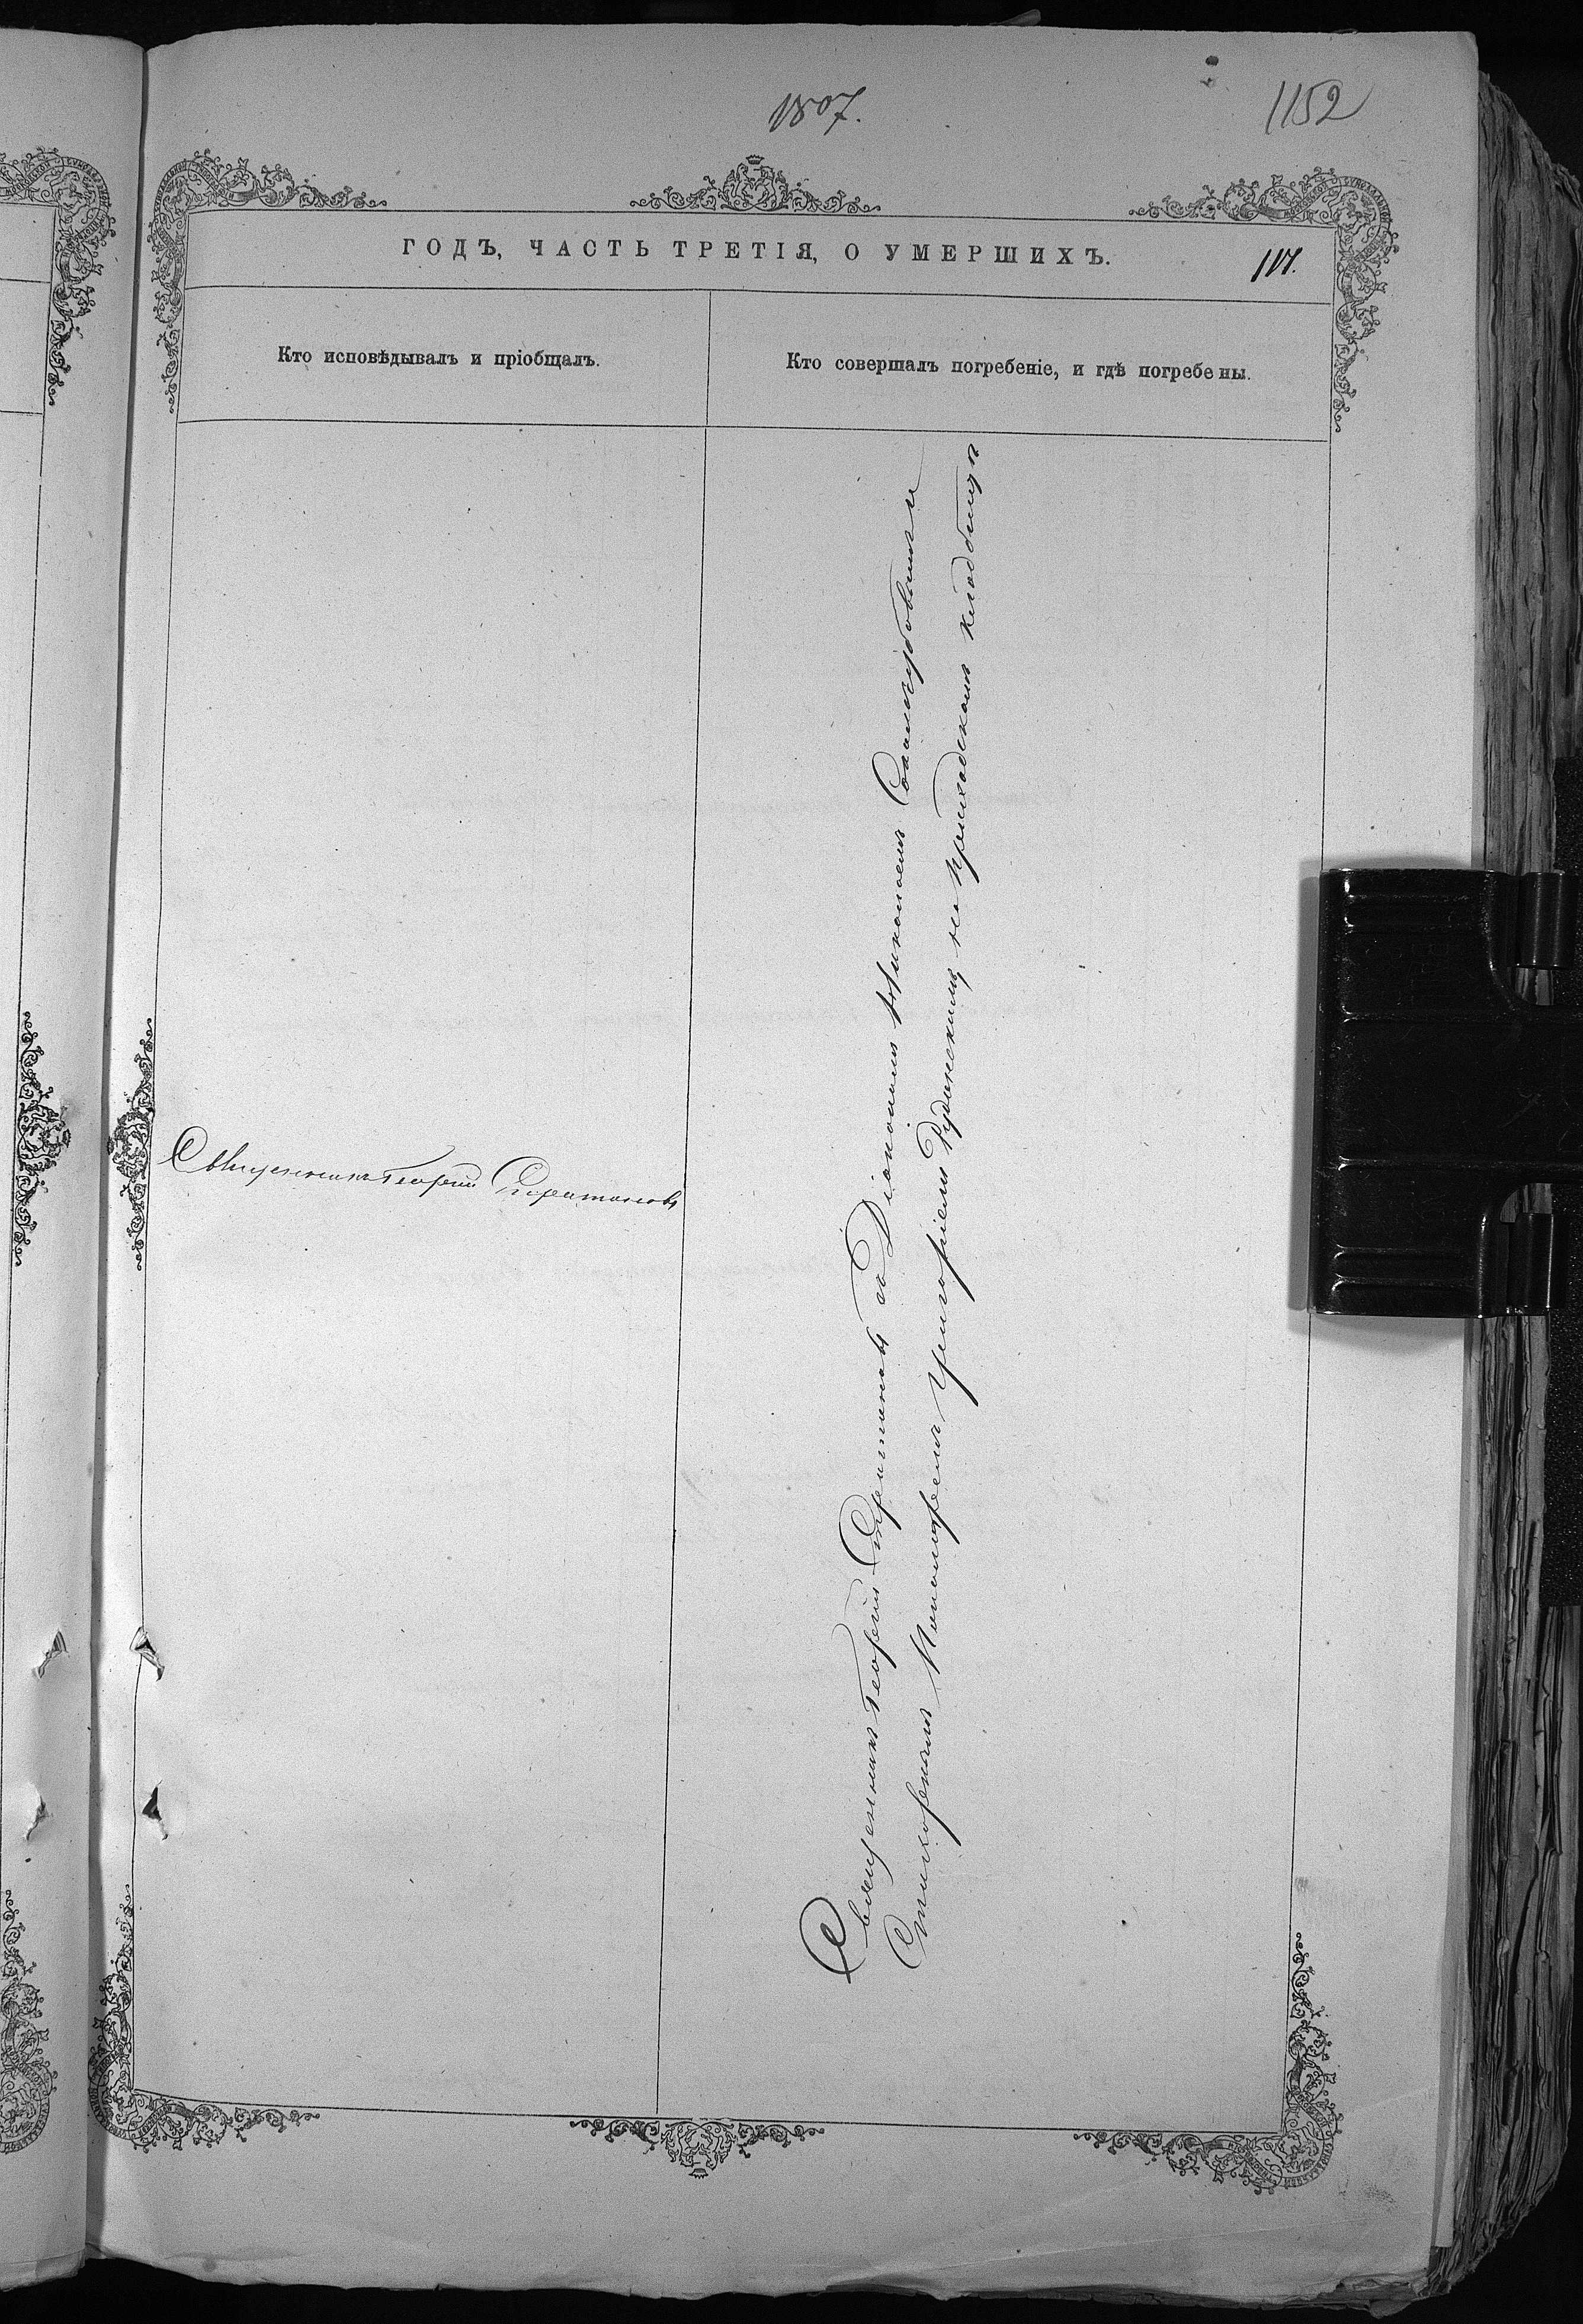 1807.
1152
ГОДЪ, ЧАСТЬ ТРЕТІЯ, О УМЕРШИХЪ.
117.
Кто исповѣдывалъ и пріобщалъ.
Кто совершалъ погребеніе, и гдѣ погребены.
Священникъ Георгій
Священникъ Георгій съ Діакономъ Николаемъ
Пономаремъ Григоріемъ на приходскомъ кладбищѣ